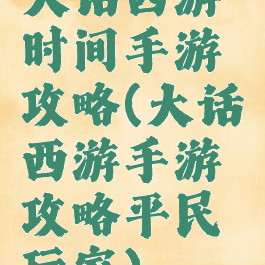 大话西游
时间手游
攻略(大话
西游手游
攻略平民
玩家)